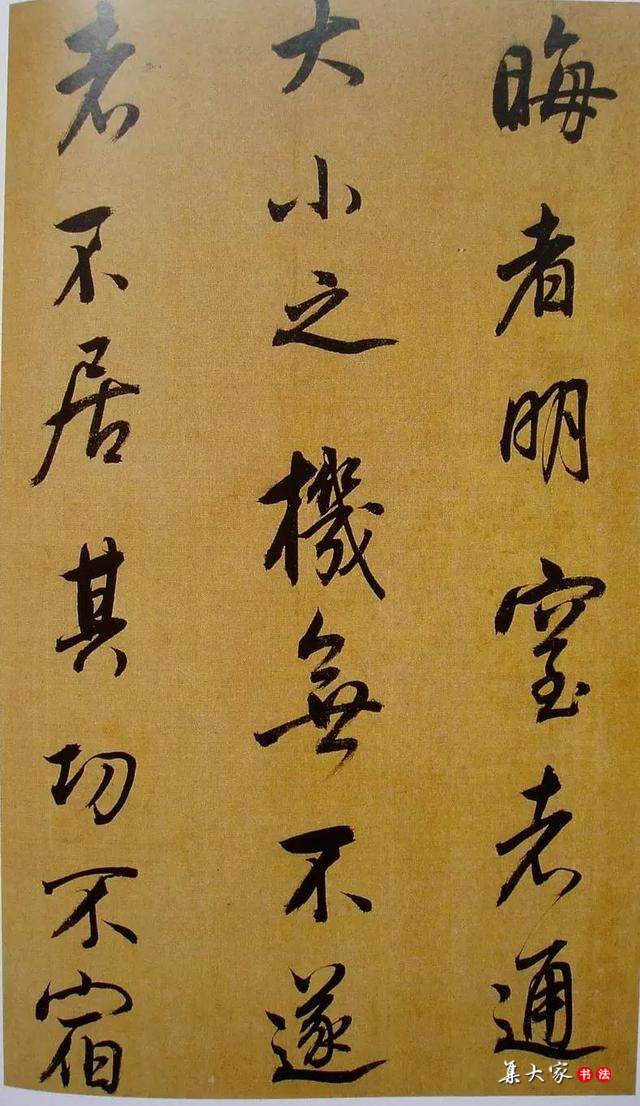 晦者明窒者通
大小之機無不遂
者不居其功不宿
集大家书法